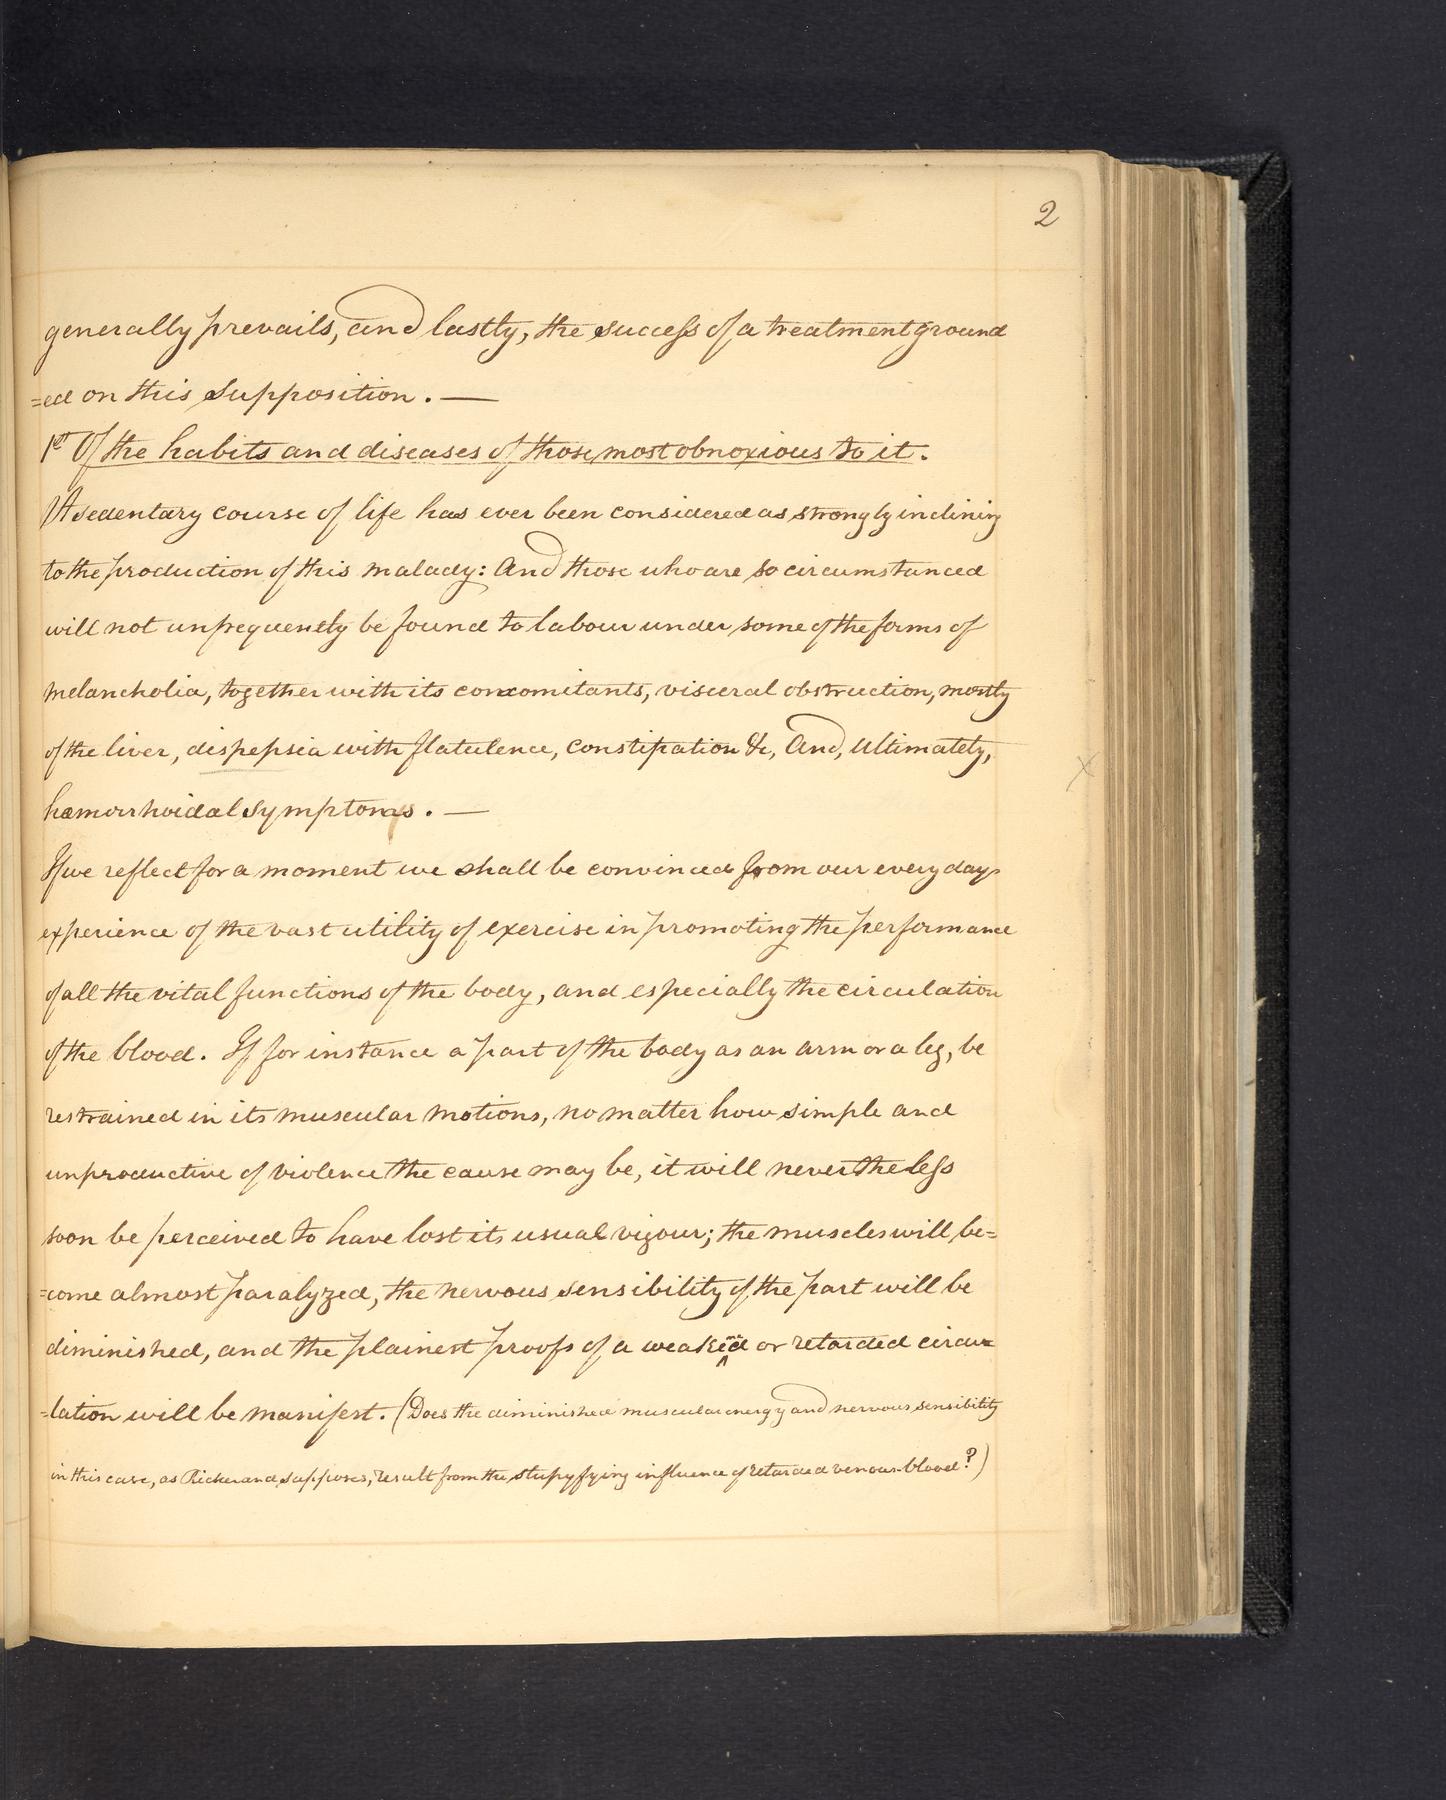 2
generally prevails, and lastly, the success of a treatment ground
=ed on this supposition. —
1st Of the habits and diseases of those most obnoxious to it.
A sedentary course of life has ever been considered as strongly inclining
to the production of this malady: And those who are so circumstanced
will not unfrequently be found to labour under some of the forms of
melancholia, together with its concomitants, visceral obstruction, mostly
of the liver, dispepsia with flatulence, constipation &c, And, ultimately,
hæmorrhoidal symptoms. —
If we reflect for a moment we shall be convinced from our every days
experience of the vast utility of exercise in promoting the performance
of all the vital functions of the body, and especially the circulation
of the blood. If for instance a part of the body as an arm or a leg, be
restrained in its muscular motions, no matter how simple and
unproductive of violence the cause may be, it will nevertheless
soon be perceived to have lost its usual vigour; the muscles will be=
=come almost paralyzed, the nervous sensibility of the part will be
diminished, and the plainest proofs of a weakened or retarded circu=
=lation will be manifest. (Does the diminished muscular energy and nervous sensibility
in this case, as Richerand supposes, result from the stupyfying influence of retarded venous blood?)
x